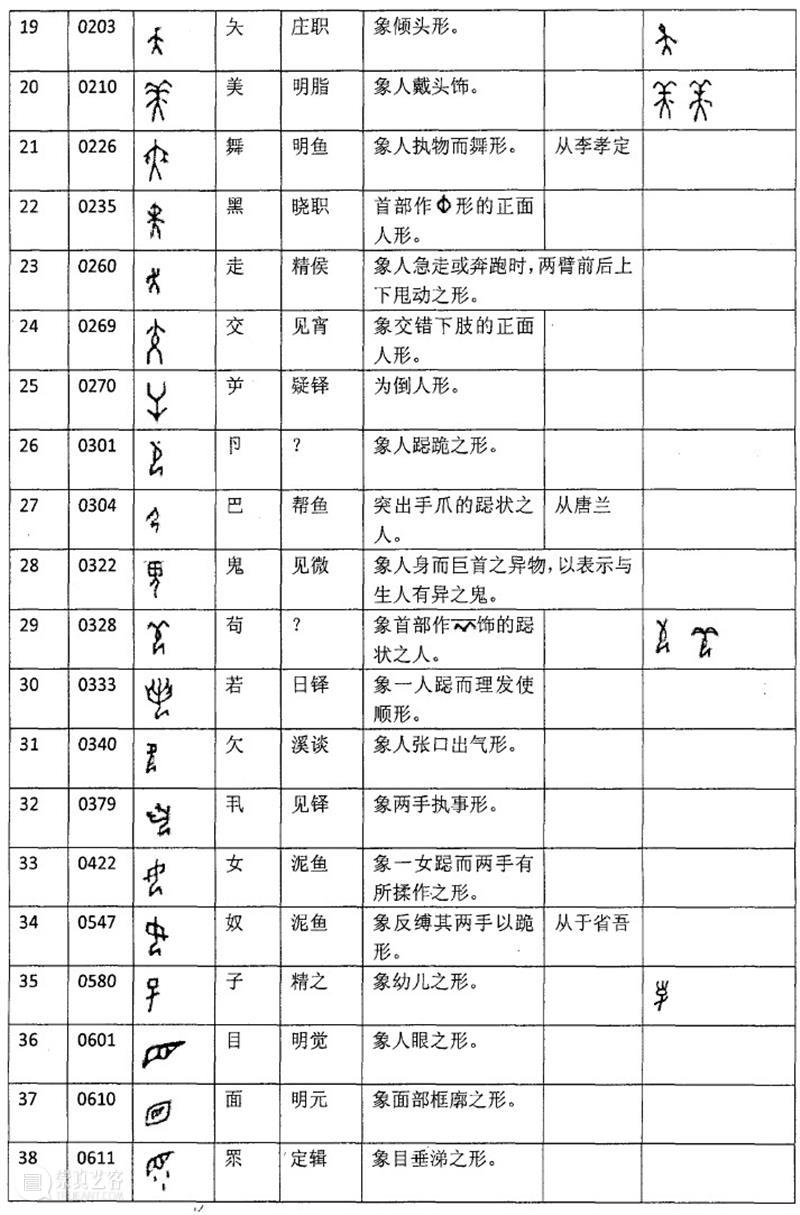 19 0203 夨 庄职 象倾头形。
20 0210 美 明脂 象人戴头饰。
21 0226 舞 明鱼 象人执物而舞形。 从李孝定
22 0235 黑 晓职 首部作形的正面
人形。
23 0260 走 精侯 象人急走或奔跑时，两臂前后上
下甩动之形。
24 0269 交 见宵 象交错下肢的正面
人形。
25 0270 屰 疑铎 为倒人形。
26 0301 卩 ？ 象人跽跪之形。
27 0304 巴 帮鱼 突出手爪的跽状之 从唐兰
人。
28 0322 鬼 见微 象人身而巨首之异物，以表示与
生人有异之鬼。
29 0328 苟 ？ 象首部作饰的跽
状之人。
30 0333 若 日铎 象一人跽而理发使
顺形。
31 0340 欠 溪谈 象人张口出气形。
32 0379 丮 见铎 象两手执事形。
33 0422 女 泥鱼 象一女跽而两手有
所揉作之形。
34 0547 奴 泥鱼 象反缚其两手以跪 从于省吾
形。
35 0580 子 精之 象幼儿之形。
36 0601 目 明觉 象人眼之形。
37 0610 面 明元 象面部框廓之形。
38 0611 眔 定辑 象目垂涕之形。
崇真艺客